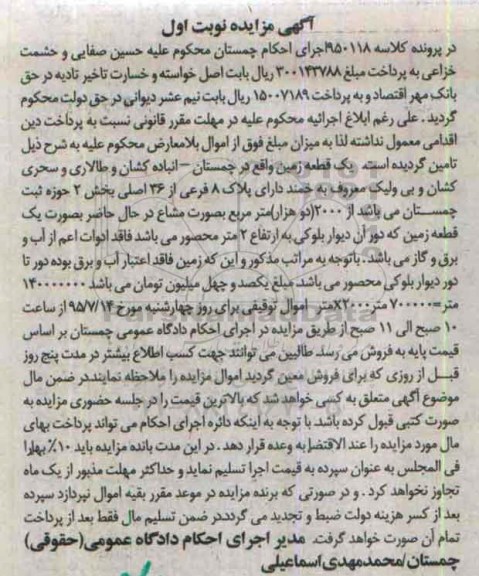 آگهی مزایده نوبت اول
در پرونده کلاسه ۹۵۰۱۱۸اجرای احکام چمستان محکوم علیه حسین صفایی و حشمت
خزاعی به پرداخت مبلغ ۳۰۰۱۴۳۷۸۸ ریال بابت اصل خواسته و خسارت تاخیر تادیه در حق
بانک مهر اقتصاد و به پرداخت ۱۵۰۰۷۱۸۹ ریال بابت نیم عشر دیوانی در حق دولت محکوم
گردید . علی رغم ابلاغ اجرائیه محکوم علیه در مهلت مقرر قانونی نسبت به پرداخت دین
اقدامی معمول نداشته لذا به میزان مبلغ فوق از اموال بلامعارض محکوم علیه به شرح ذیل
تامین گردیده است. یک قطعه زمین واقع در چمستان – انباده کشان و طالاری و سحری
کشان و بی ولیک معروف به خمند دارای پلاک ۸ فرعی از ۳۶ اصلی بخش ۲ حوزه ثبت
چمستان می باشد از ۲۰۰۰(دو هزار)متر مربع بصورت مشاع در حال حاضر بصورت یک
قطعه زمین که دور آن دیوار بلوکی به ارتفاع ۲ متر محصور می باشد فاقد ادوات اعم از آب و
برق و گاز می باشد . باتوجه به مراتب مذکور و این که زمین فاقد اعتبار آب و برق بوده دور تا
دور دیار بلوکی محصور می باشد. مبلغ یکصد و چهل میلیون تومان می باشد ۱۴۰۰۰۰۰۰۰
متر=۷۰۰۰۰ متر۲۰۰۰X متر. اموال توقیفی برای روز چهارشنبه مورخ ۹۵/۷/۱۴ از ساعت
۱۰ صبح الی ۱۱ صبح از طریق مزایده در اجرای احکام دادگاه عمومی چمستان بر اساس
قیمت پایه به فروش می رسد. طالبین می توانند جهت کسب اطلاع بیشتر در مدت پنج روز
قبل از روزی که برای فروش معین گردید اموال مزایده را ملاحظه نمایند.در ضمن مال
موضوع آگهی متعلق به کسی خواهد شد که بالاترین قیمت را در جلسه حضوری مزایده به
صورت کتبی قبول کرده باشد. با توجه به اینکه دائره اجرای احکام می تواند پرداخت بهای
مال مورد مزایده را عند الاقتضا به وعده قرار دهد . در این مدت بانده مزایده باید ۱۰٪ بها را
فی المجلس به عنوان سپرده به قیمت اجرا تسلیم نماید و حداکثر مهلت مذبور از یک ماه
تجاوز نخواهد کرد . و در صورتی که برنده مزایده در موعد مقرر بقیه اموال نپردازد سپرده
بعد از کسر هزینه دولت ضبط و تجدید می گردد.در ضمن تسلیم مال فقط بعد از پرداخت
تمام آن صورت خواهد گرفت. مدیر اجرای احکام دادگاه عمومی(حقوقی)
چمستان/محمدمهدی اسماعیلی